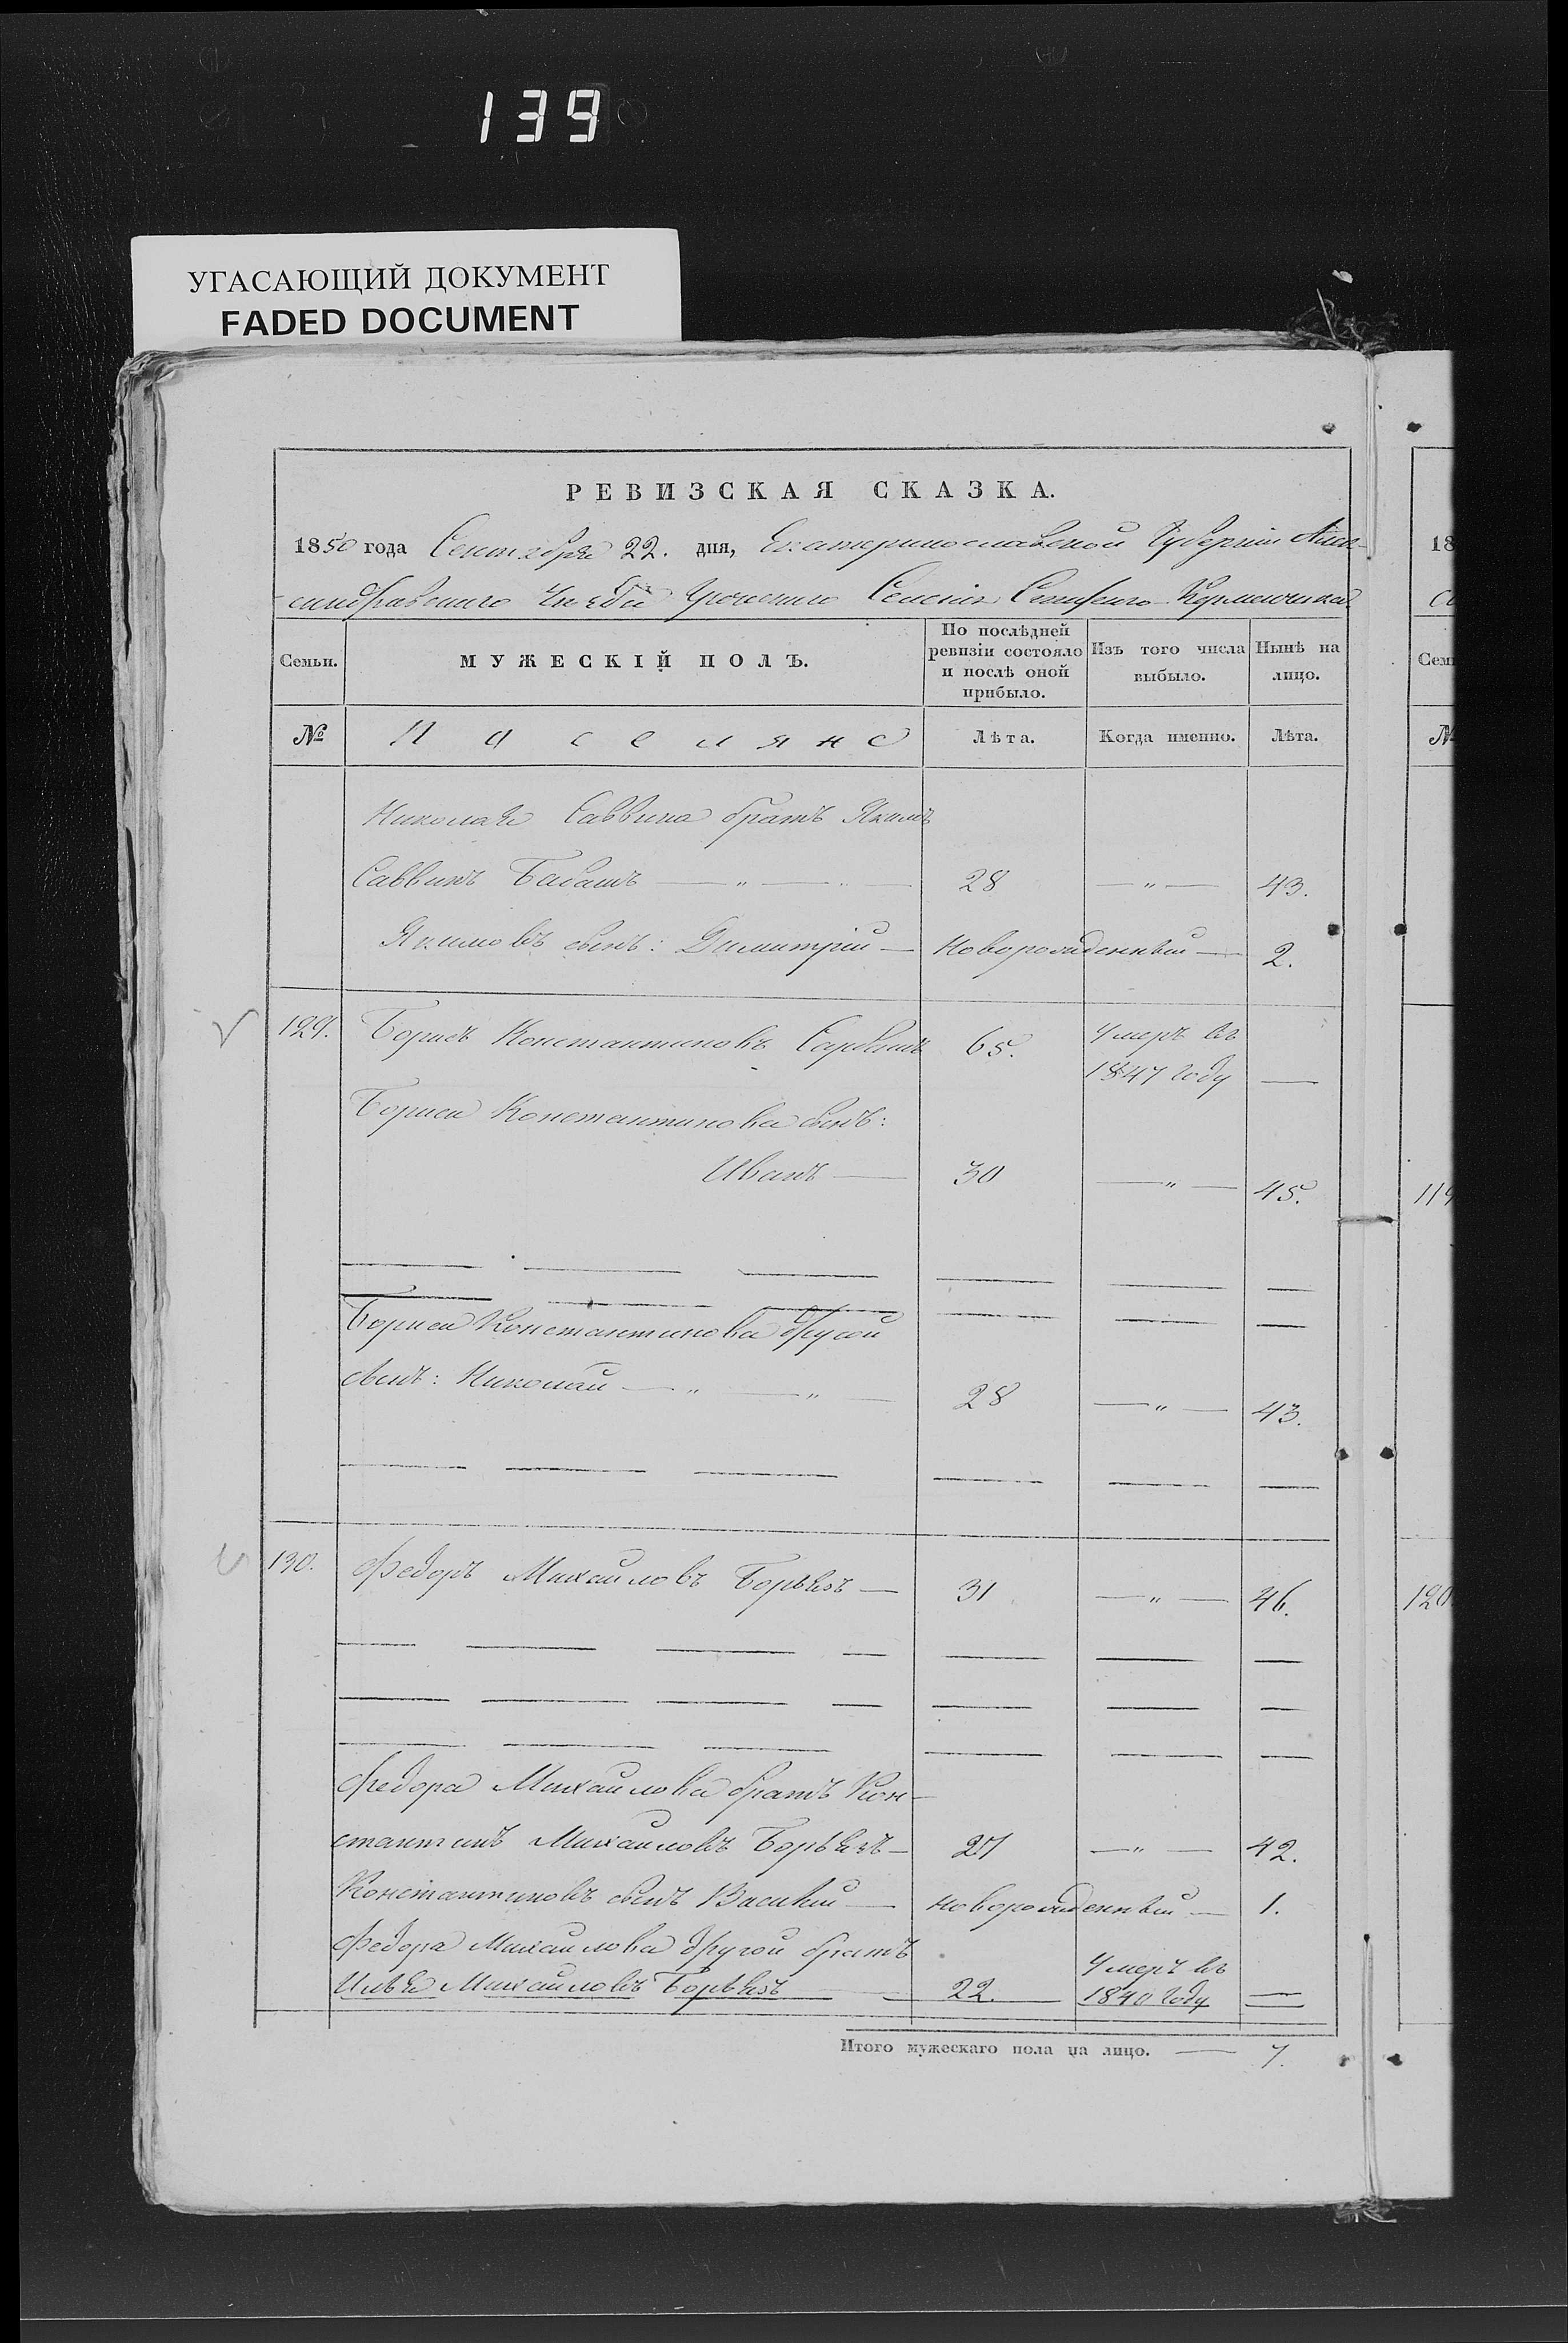 139
УГАСАЮЩИЙ ДОКУМЕНТ
FADED DOCUMENT
РЕВИЗСКАЯ СКАЗКА.
1850 года Сентября 22. дня, Екатеринославской Губерніи Алек-
сандравскаго Уѣзда Греческаго Селенія Стараго Керменчика
Семьи. МУЖЕСКІЙ ПОЛЪ. По послѣдней ревизіи состояло и послѣ оной прибыло. Изъ того числа выбыло. Нынѣ на лицо.
№ Поселяне Лѣта. Когда именно. Лѣта.
Николая Саввина братъ Якимъ
Саввинъ — " — " — 28 — " — 43.
Якимовъ сынъ: Димитрій — Новорожденный — 2.
129. Борисъ Константиновъ 65. Умеръ въ
1847 году —
Бориса Константинова сынъ:
Иванъ — 30 — " — 45.
Бориса Константинова другой
сынъ: Николай — " — " — 28 — " — 43.
130. Федоръ Михайловъ — 31 — " — 46.
Федора Михайлова братъ Кон-
стантинъ Михайловъ — 27 — " — 42.
Константиновъ сынъ Василій — новорожденный — 1.
Федора Михайлова другой братъ
Илья Михайловъ — 22. Умеръ въ
1840 году —
Итого мужескаго пола на лицо. — 7.
18
Сем
№
119
120